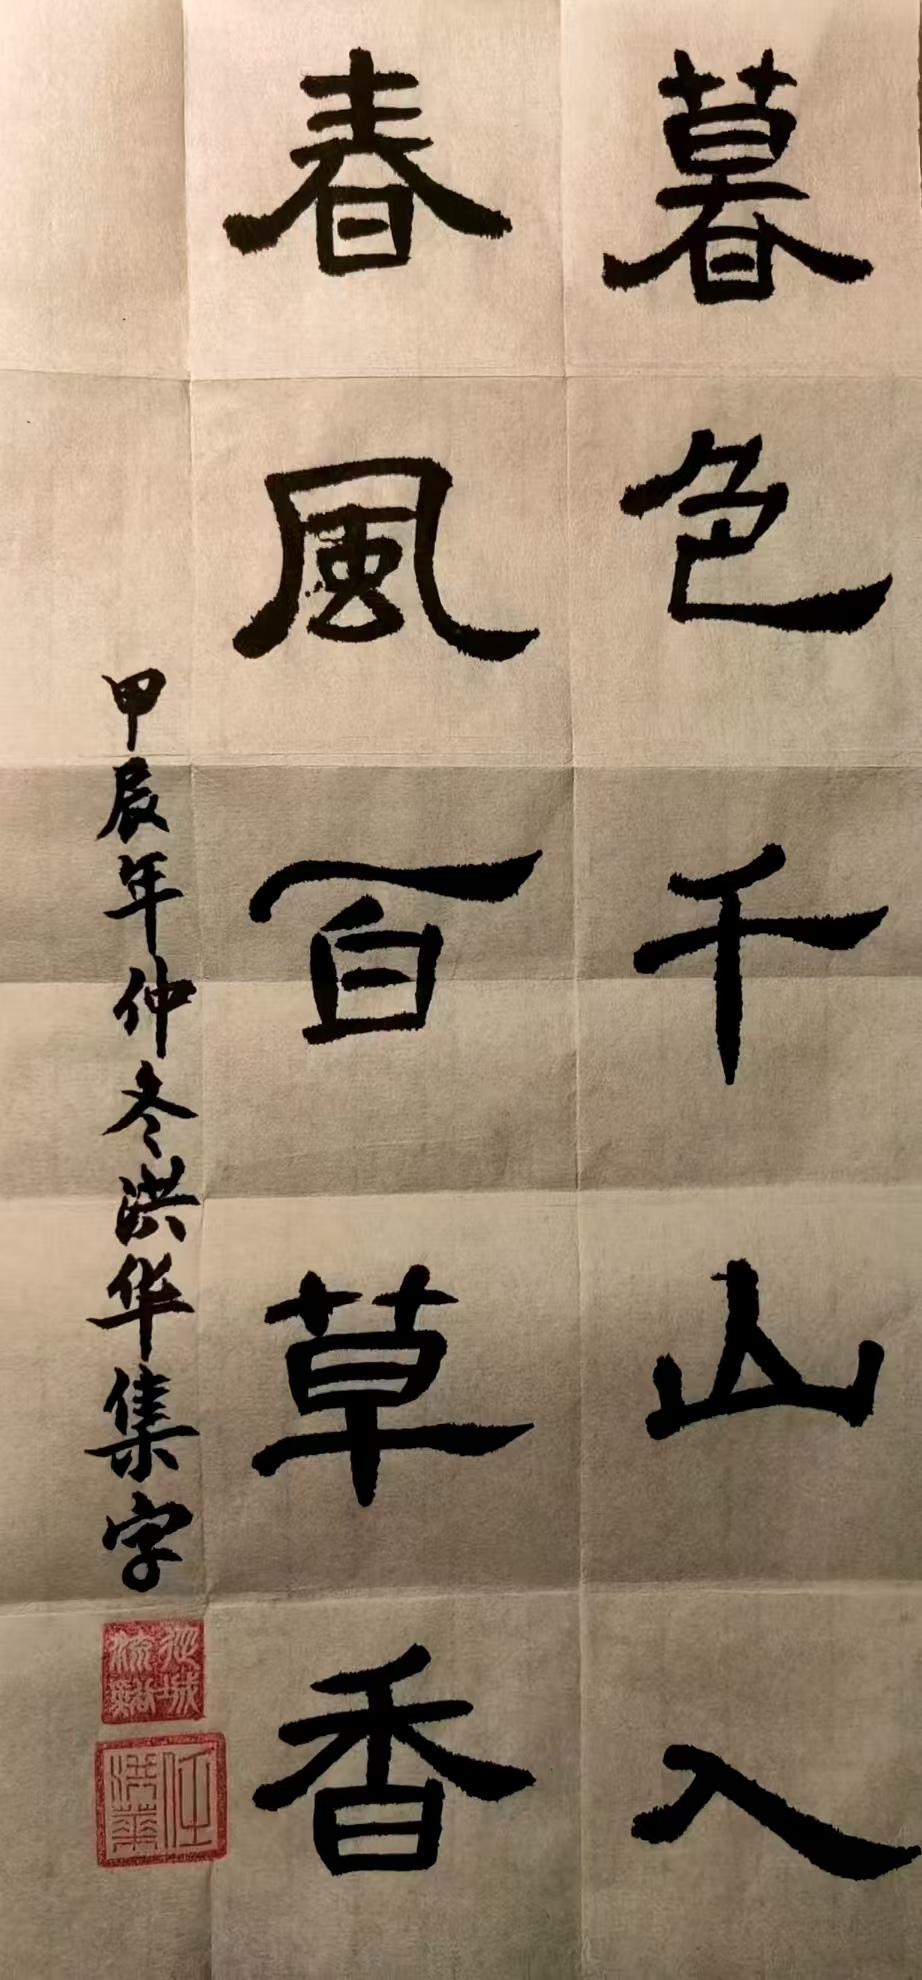 暮色千山入
春風百草香
甲辰年仲冬洪华集字
任洪華